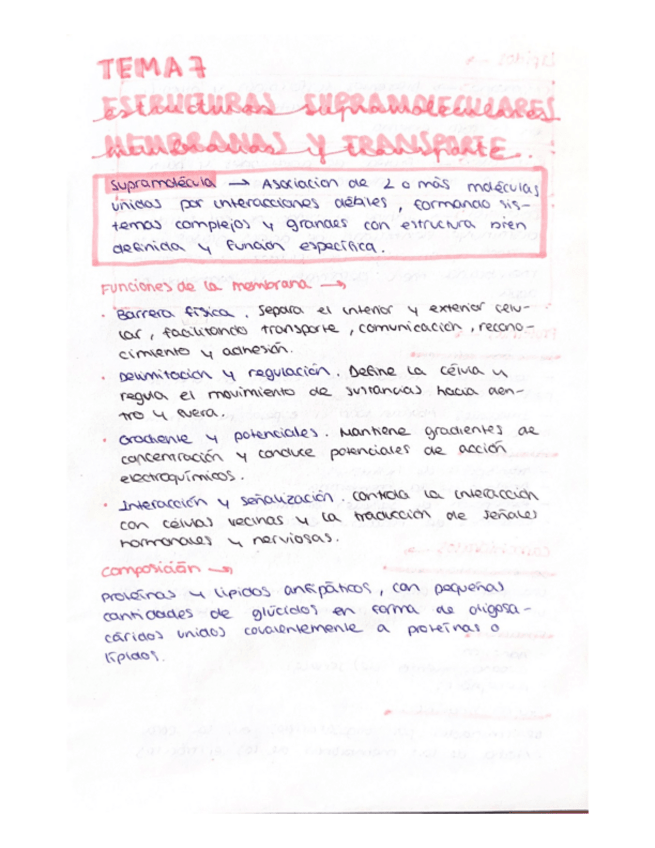 TEMA 7
ESTRUCTURAS SUPRAMOLECULARES
MEMBRANAS Y TRANSPORTE.
Supramolécula → Asociación de 2 o más moléculas
unidas por interacciones débiles, formando sis-
temas complejos y grandes con estructura bien
definida y función específica.
Funciones de la membrana →
· Barrera física. Separa el interior y exterior celu-
lar, facilitando transporte, comunicación, recono-
cimiento y adhesión.
· Delimitación y regulación. Define la célula y
regula el movimiento de sustancias hacia den-
tro y fuera.
· Gradiente y potenciales. Mantiene gradientes de
concentración y conduce potenciales de acción
electroquímicos.
· Interacción y señalización. Controla la interacción
con células vecinas y la traducción de señales
hormonales y nerviosas.
Composición →
Proteínas y lípidos anfipáticos, con pequeñas
cantidades de glúcidos en forma de oligosa-
cáridos unidos covalentemente a proteínas o
lípidos.